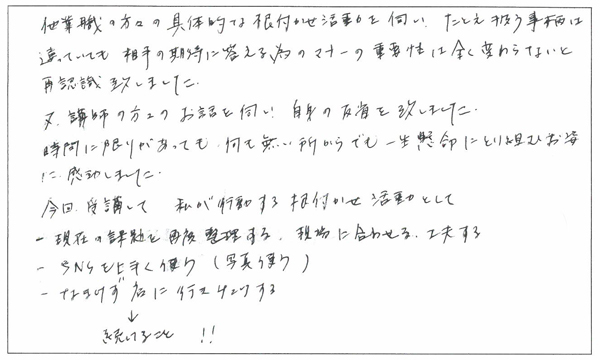 他業職の方々の具体的な根付かせ活動を伺い、たとえ扱う事柄は
違っていても 相手の期待に答える為のマナーの重要性は全く変わらないと
再認識致しました。
又、講師の方々のお話を伺い、自身の反省を致しました。
時間に限りがあっても、何も無い所からでも一生懸命にとり組むお姿
に感動しました。
今回受講して 私が行動する根付かせ活動として
- 現在の課題を再度整理する。現場に合わせる、工夫する
- SNSを上手く使う (写真使う)
- なまけず
↓
続けること !!